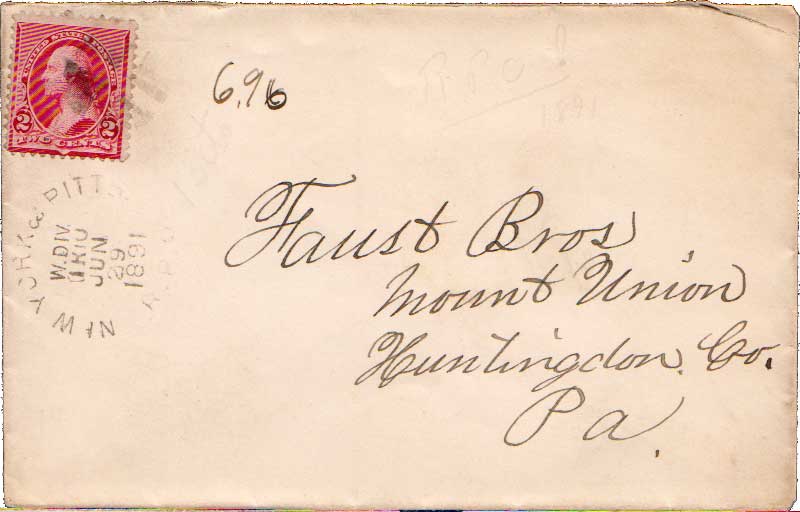 UNITED STATES POSTAGE
2 2
TWO CENTS
6.96
R P O !
1891
NEW YORK & PITTS
R.P.O
W.DIV.
JUN
29
1891
Faust Bros
Mount Union
Huntingdon. Co.
Pa.